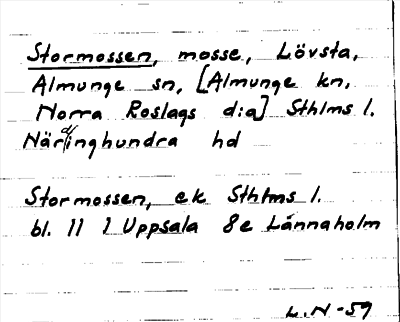 Stormossen, mosse, Lövsta,
Almunge sn, [Almunge kn,
Norra Roslags d:a] Sthlms l.
Närdinghundra hd
Stormossen, ek Sthlms l.
bl. 11 I Uppsala 8e Lännaholm
L.N-59